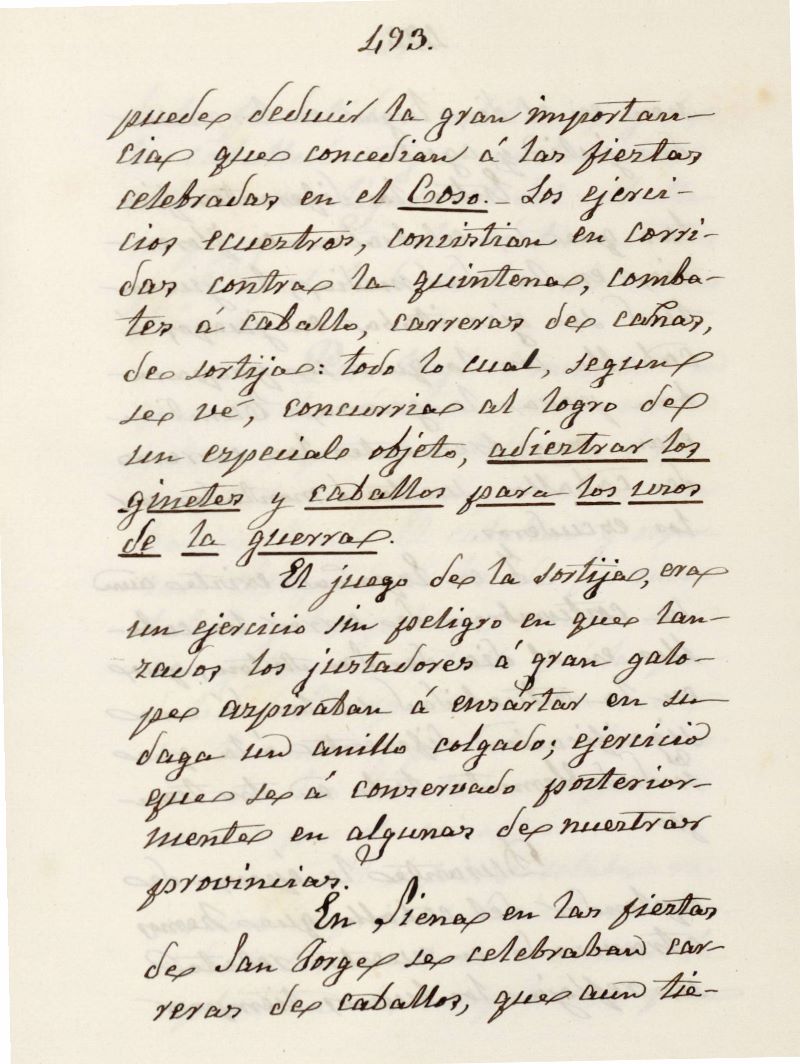 493.
puede deducir la gran importan-
cia que concedian á las fiestas
celebradas en el Coso.- Los ejerci-
cios ecuestres, consistian en corri-
das contra la quintena, comba-
tes á caballo, carreras de cañas,
de sortija: todo lo cual, segun
se vé, concurria al logro de
un especial objeto, adiestrar los
ginetes y caballos para los usos
de la guerra.
El juego de la sortija, era
un ejercicio sin peligro en que lan-
zados los justadores á gran galo-
pe aspiraban á ensartar en su
daga un anillo colgado; ejercicio
que se á conservado posterior-
mente en algunas de nuestras
provincias.
En Siena en las fiestas
de San Jorge se celebraban car-
reras de caballos, que aun tie-